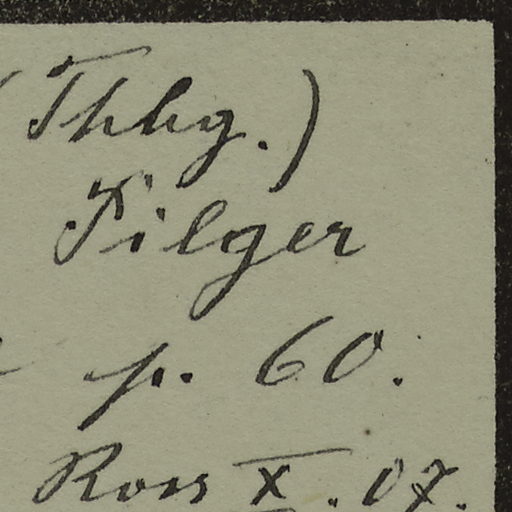 (Thbg.)
Pilger
p. 60.
Ross X. 07.